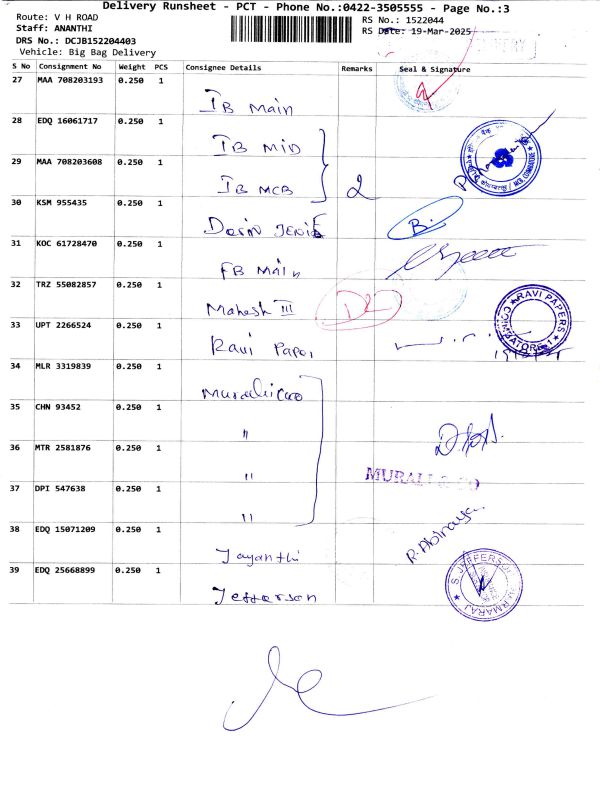 Delivery Runsheet - PCT - Phone No.:0422-3505555 - Page No.:3
Route: V H ROAD
RS No.: 1522044
Staff: ANANTHI
RS Date: 19-Mar-2025
DRS No.: DCJB152204403
Vehicle: Big Bag Delivery
S No Consignment No Weight PCS Consignee Details Remarks Seal & Signature
27 MAA 708203193 0.250 1 IB Main
28 EDQ 16061717 0.250 1 IB MID
29 MAA 708203608 0.250 1 IB MCB 2
30 KSM 955435 0.250 1 B.
31 KOC 61728470 0.250 1 FB Main
32 TRZ 55082857 0.250 1 Mahesh III
33 UPT 2266524 0.250 1 Ravi Paper RAVI PAPERS COIMBATORE-1
34 MLR 3319839 0.250 1 Murali & co
35 CHN 93452 0.250 1 "
36 MTR 2581876 0.250 1 " MURALI & CO
37 DPI 547638 0.250 1 "
38 EDQ 15071209 0.250 1 Jayanthi R. Abinaya
39 EDQ 25668899 0.250 1 Jefferson